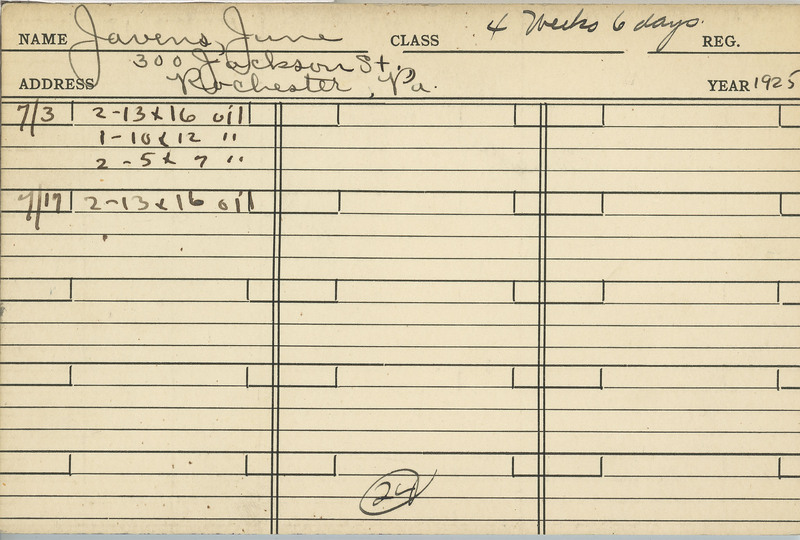 NAME Javens, June CLASS 4 Weeks 6 days. REG.
300 Jackson St.
ADDRESS Rochester, Pa. YEAR 1925
7/3 2-13x16 oil
1-10x12 "
2-5x7 "
7/17 2-13x16 oil
24